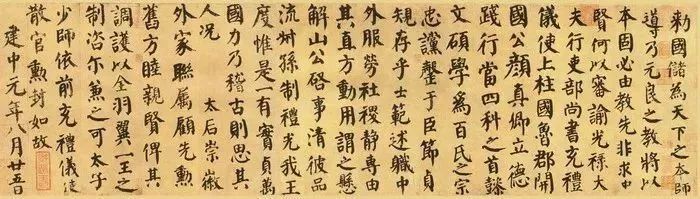 勑國儲為天下之本師
導乃元良之教將以
本固必由教先非求中
賢何以審諭光禄大
夫行吏部尚書充禮
儀使上柱國魯郡開
國公顏真卿立德
踐行當四科之首懿
文碩學為百氏之宗
忠讜罄于臣節貞
規存乎士範述職中
外服勞社稷靜專由
其直方動用謂之懸
解山公啓事清彼品
流叔孫制禮光我王
度惟是一有實貞萬
國力乃稽古則思其
人況 太后崇徽
外家聯属顧先勳
舊方睦親賢俾其
調護以全羽翼一王之
制咨尔兼之可太子
少師依前充禮儀使
散官勳封如故
建中元年八月廿五日